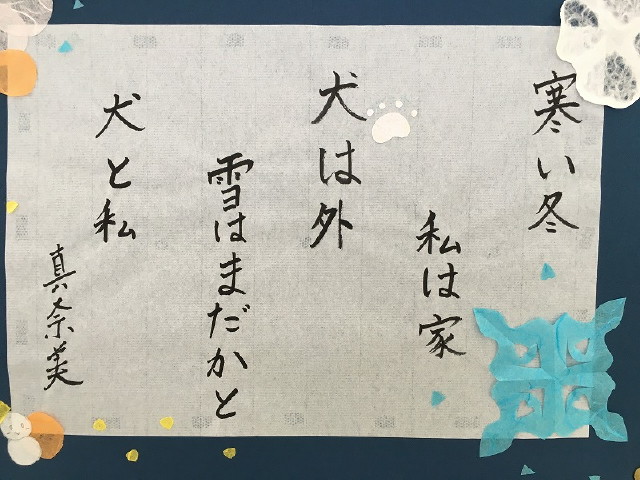 寒い冬
私は家
犬は外
雪はまだかと
犬と私
真奈美